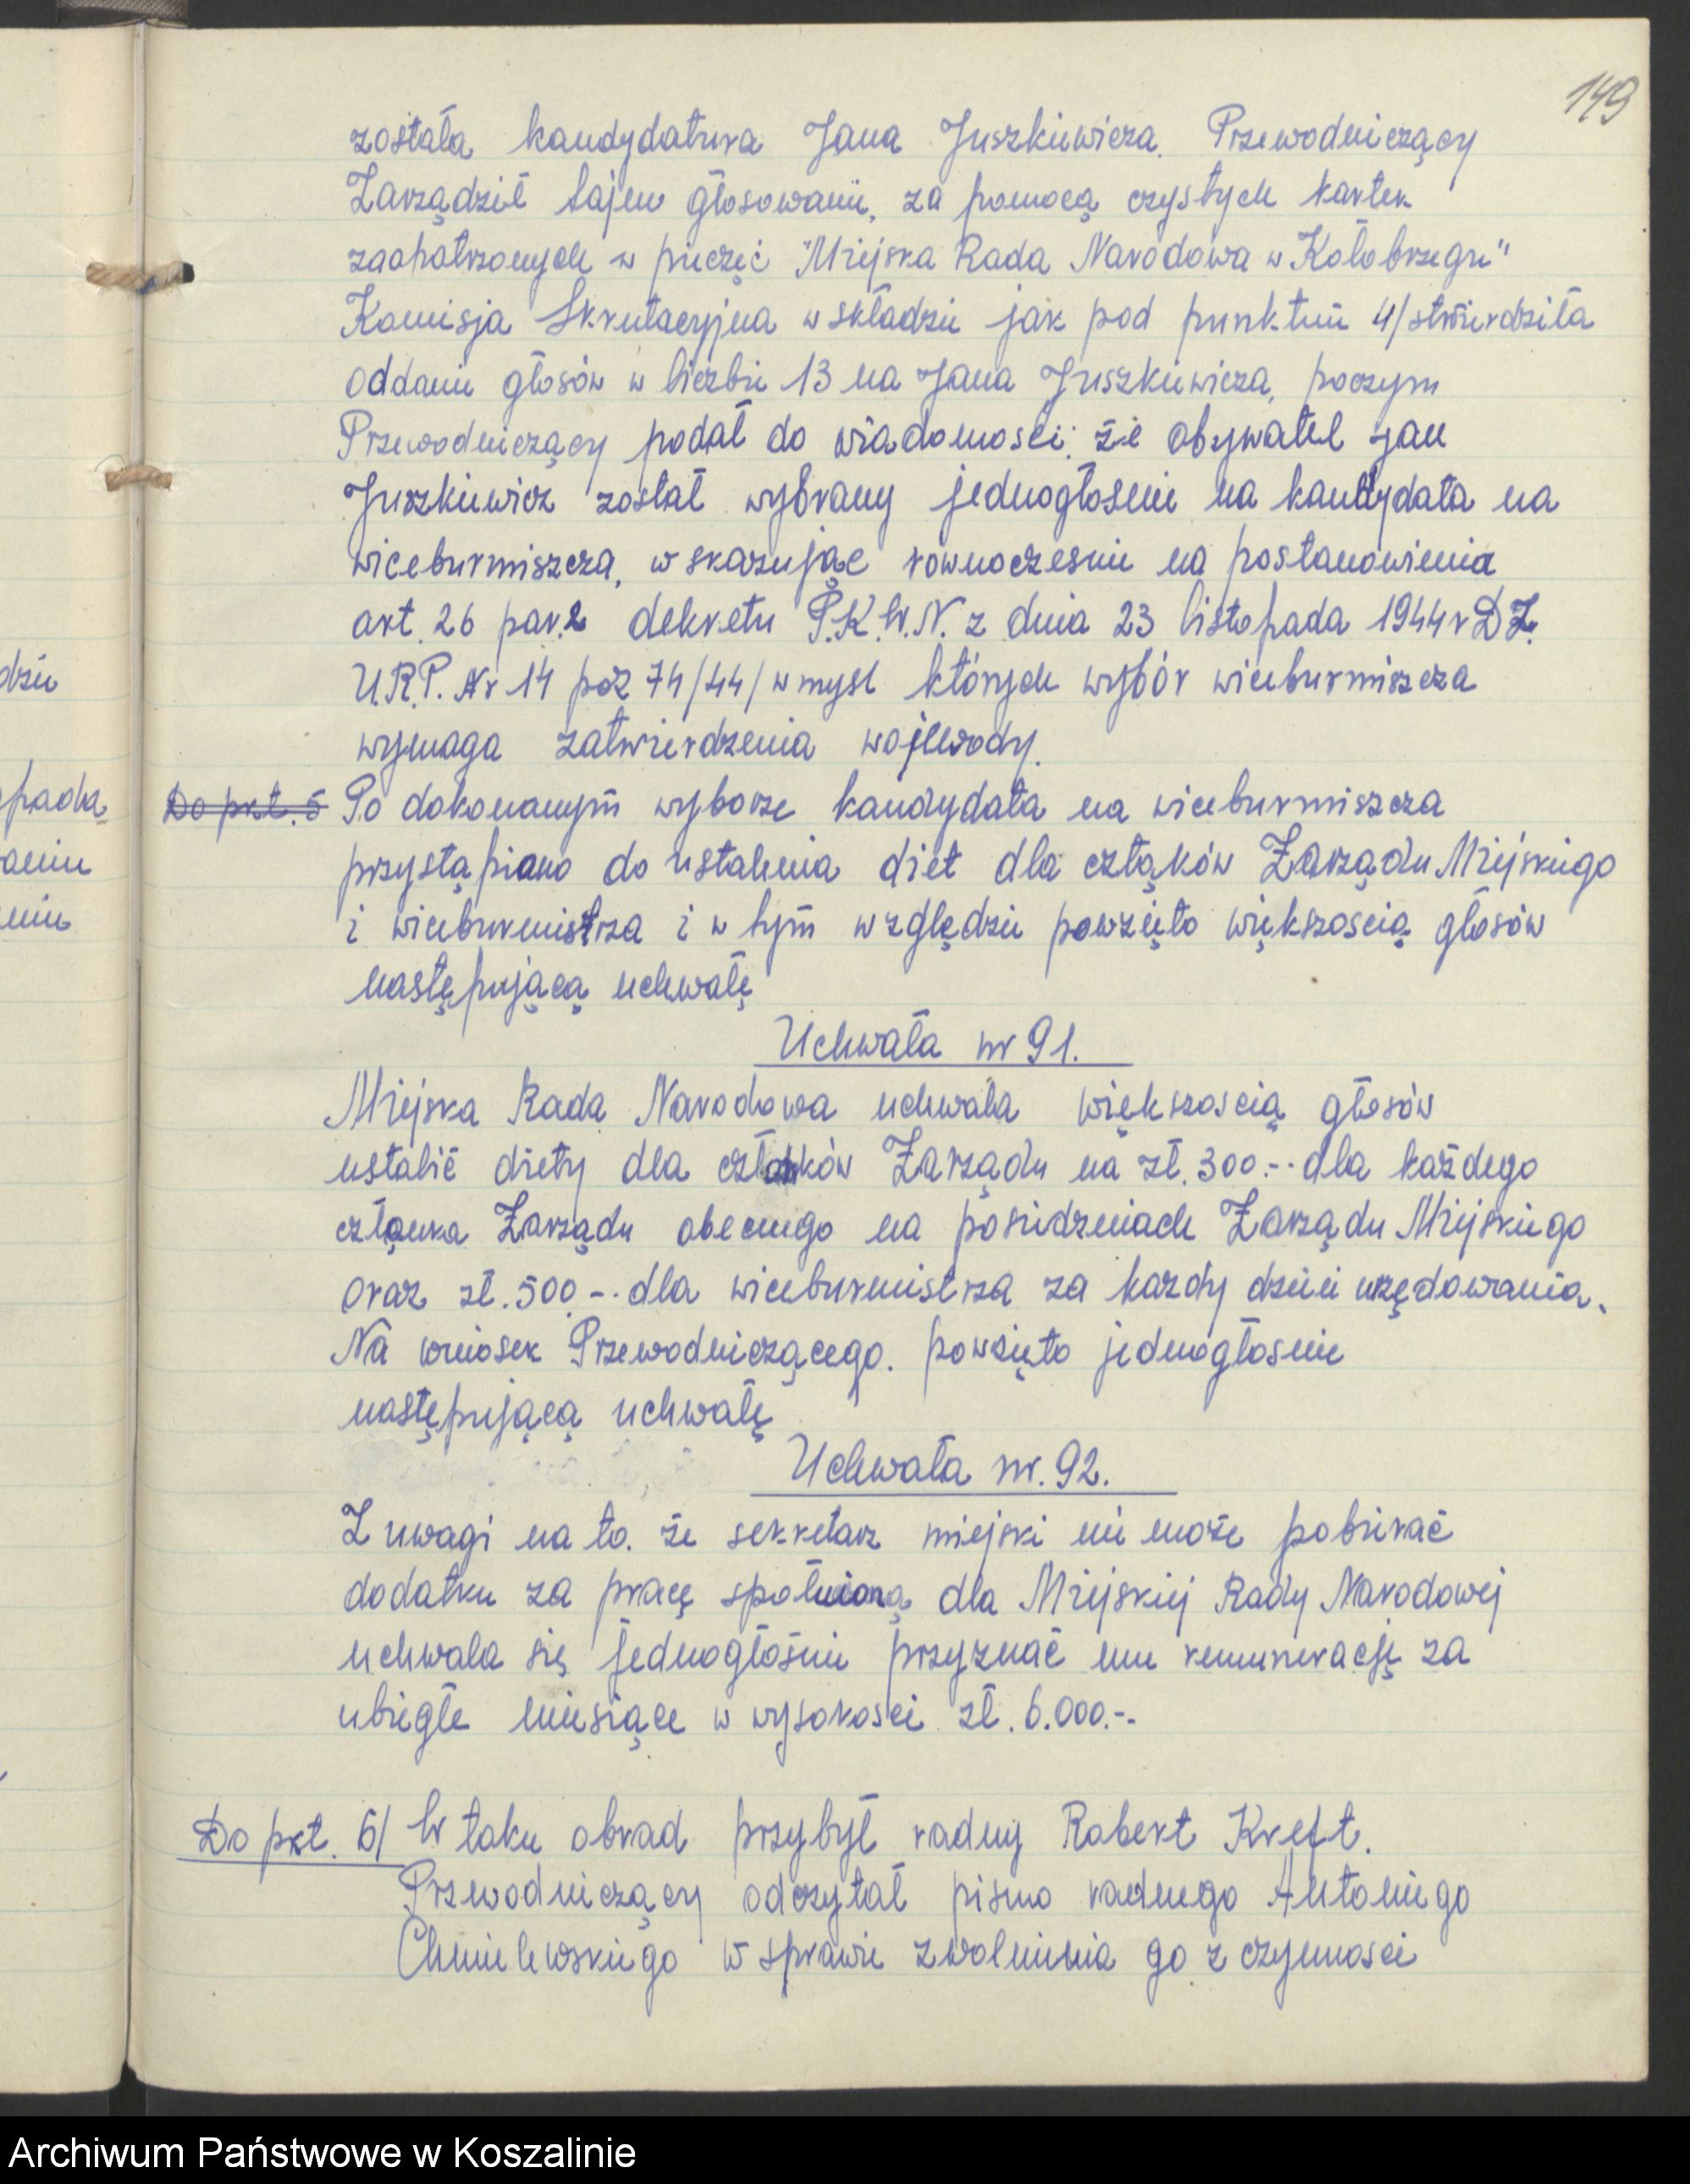 149
została kandydatura Jana Juszkiewicza. Przewodniczący
Zarządził tajew głosowanie, za pomocą czystych kartek
zaopatrzonych w pieczęć "Miejska Rada Narodowa w Kołobrzegu"
Komisja Skrutacyjna w składzie jak pod punktem 4/ stwierdziła
oddanie głosów w liczbie 13 na Jana Juszkiewicza, poczym
Przewodniczący podał do wiadomosci: że obywatel Jan
Juszkiewicz został wybrany jednogłosnie na kandydata na
wiceburmiszcza, wskazując rownoczesnie na postanowienia
art. 26 par.2 dekretu P.K.W.N. z dnia 23 listopada 1944 r DZ.
U.R.P. Nr 14 poz 74/44/ w mysl których wybór wiceburmiszcza
wymaga zatwierdzenia wojewody.
Do pkt. 5 Po dokonanym wyborze kandydata na wiceburmiszcza
przystąpiono do ustalenia diet dla człąków Zarządu Miejskiego
i wiceburmistrza i w tym względzie powzięto większoscią głosów
następującą uchwałę
Uchwała nr 91.
Miejska Rada Narodowa uchwala większoscią głosów
ustalić diety dla członków Zarządu na zł. 300.-- dla każdego
człąnka Zarządu obecnego na posiedzeniach Zarządu Miejskiego
oraz zł. 500.-- dla wiceburmistrza za kazdy dzień urzędowania.
Na wniosek Przewodniczącego. powzięto jednogłosnie
następującą uchwałę
Uchwała nr. 92.
Z uwagi na to. że sekretarz miejski nie może pobierać
dodatku za pracę społnioną dla Miejskiej Rady Narodowej
uchwala się jednogłośnie przyznać mu remunerację za
ubiegłe miesiące w wysokosci zł. 6.000.--
Do pkt. 6/ W toku obrad przybył radny Robert Kreft.
Przewodniczący odczytał pismo radnego Antoniego
Chmielewskiego w sprawie zwolnienia go z czynnosci
dziu
opada
aniu
eniu
Archiwum Państwowe w Koszalinie